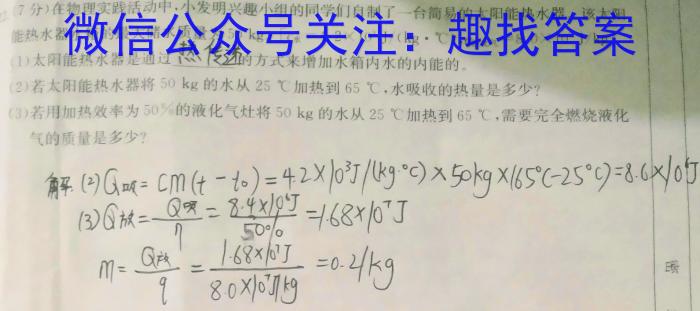 (7分)在物理实践活动中,小发明兴趣小组的同学们自制了一台简易的太阳能热水器,该太阳
能热水器
微信公众号关注：趣找答案
(1)太阳能热水器是通过 热传递 的方式来增加水箱内水的内能的。
(2)若太阳能热水器将 50 kg 的水从 25 ℃加热到 65 ℃,水吸收的热量是多少?
(3)若用加热效率为 50%的液化气灶将 50 kg 的水从 25 ℃加热到 65 ℃,需要完全燃烧液化
气的质量是多少?
解 (2) Q吸 = cm(t - t₀) = 4.2×10³J/(kg·℃)×50kg×(65℃-25℃)=8.6×10⁶J
(3) Q放 = Q吸/η = 8.4×10⁶J/50% = 1.68×10⁷J
m = Q放/q = 1.68×10⁷J/8.0×10⁷J/kg = 0.21kg